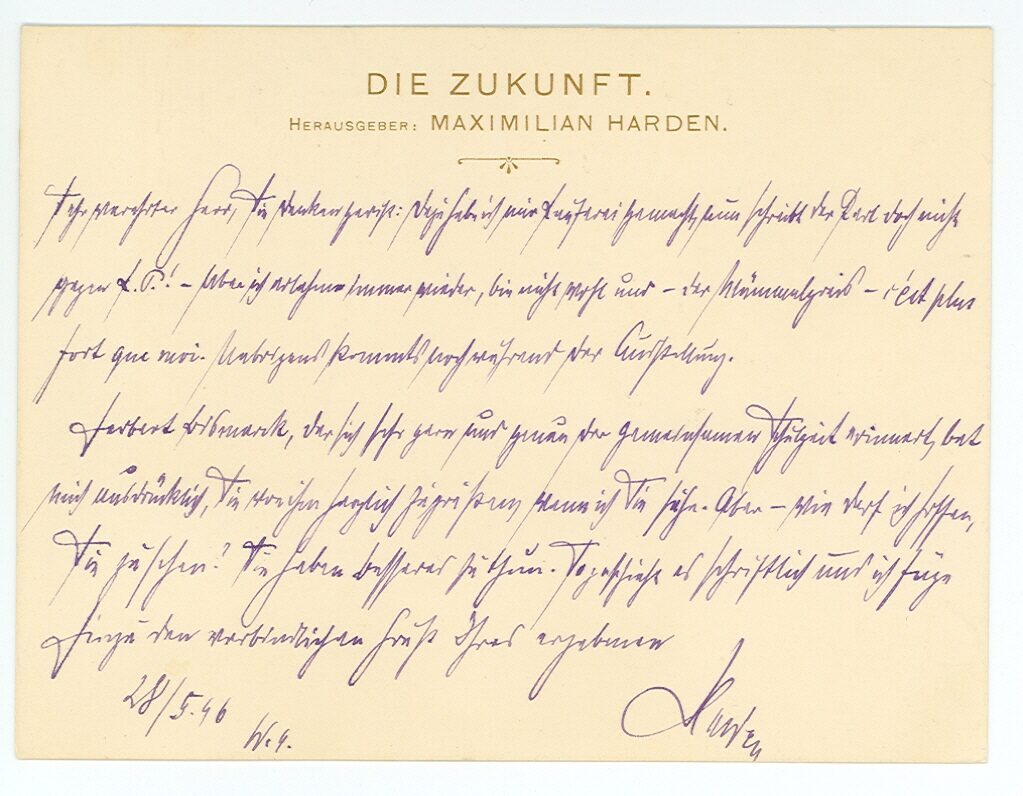 DIE ZUKUNFT.
HERAUSGEBER: MAXIMILIAN HARDEN.
Sehr verehrter Herr, Sie denken gewiß: Dazu hab ich mir gemacht, nun schreibt der Kerl doch nicht
gegen L. P.! – Aber ich erlahme immer wieder, bin nicht wohl und – der – c'est plus
fort que moi. Uebrigens kommts noch während der Ausstellung.
Herbert Bismarck, der sich sehr gern und genau der gemeinsamen Schulzeit erinnert, bat
mich ausdrücklich, Sie von ihm herzlich zu grüßen, wenn ich Sie sähe. Aber – wie darf ich hoffen,
Sie zu sehen? Sie haben Besseres zu thun. So geschieht es schriftlich und ich füge
hinzu den verbindlichen Gruß Ihres ergebenen
28/5.96
Harden
W.9.